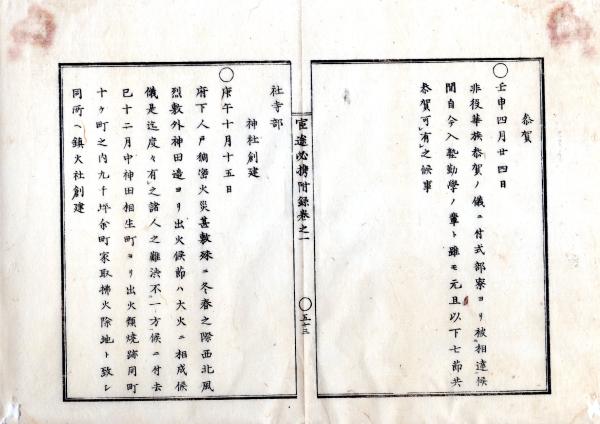 恭賀
○壬申四月廿四日
非役華族恭賀ノ儀ニ付式部寮ヨリ被相達候
間自今入塾勤学ノ輩ト雖モ元旦以下七節共
恭賀可有之候事
宣達必携附録巻之一
○五十三
社寺部
神社創建
○庚午十月十五日
府下人戸稠密火災甚敷殊ニ冬春之際西北風
烈敷外神田辺ヨリ出火候節ハ大火ニ相成候
儀是迄度々有之諸人之難渋不一方候ニ付去
巳十二月中神田相生町ヨリ出火類焼跡同町
十ケ町之内九千坪余町家取払火除地ト致シ
同所ヘ鎮火社創建